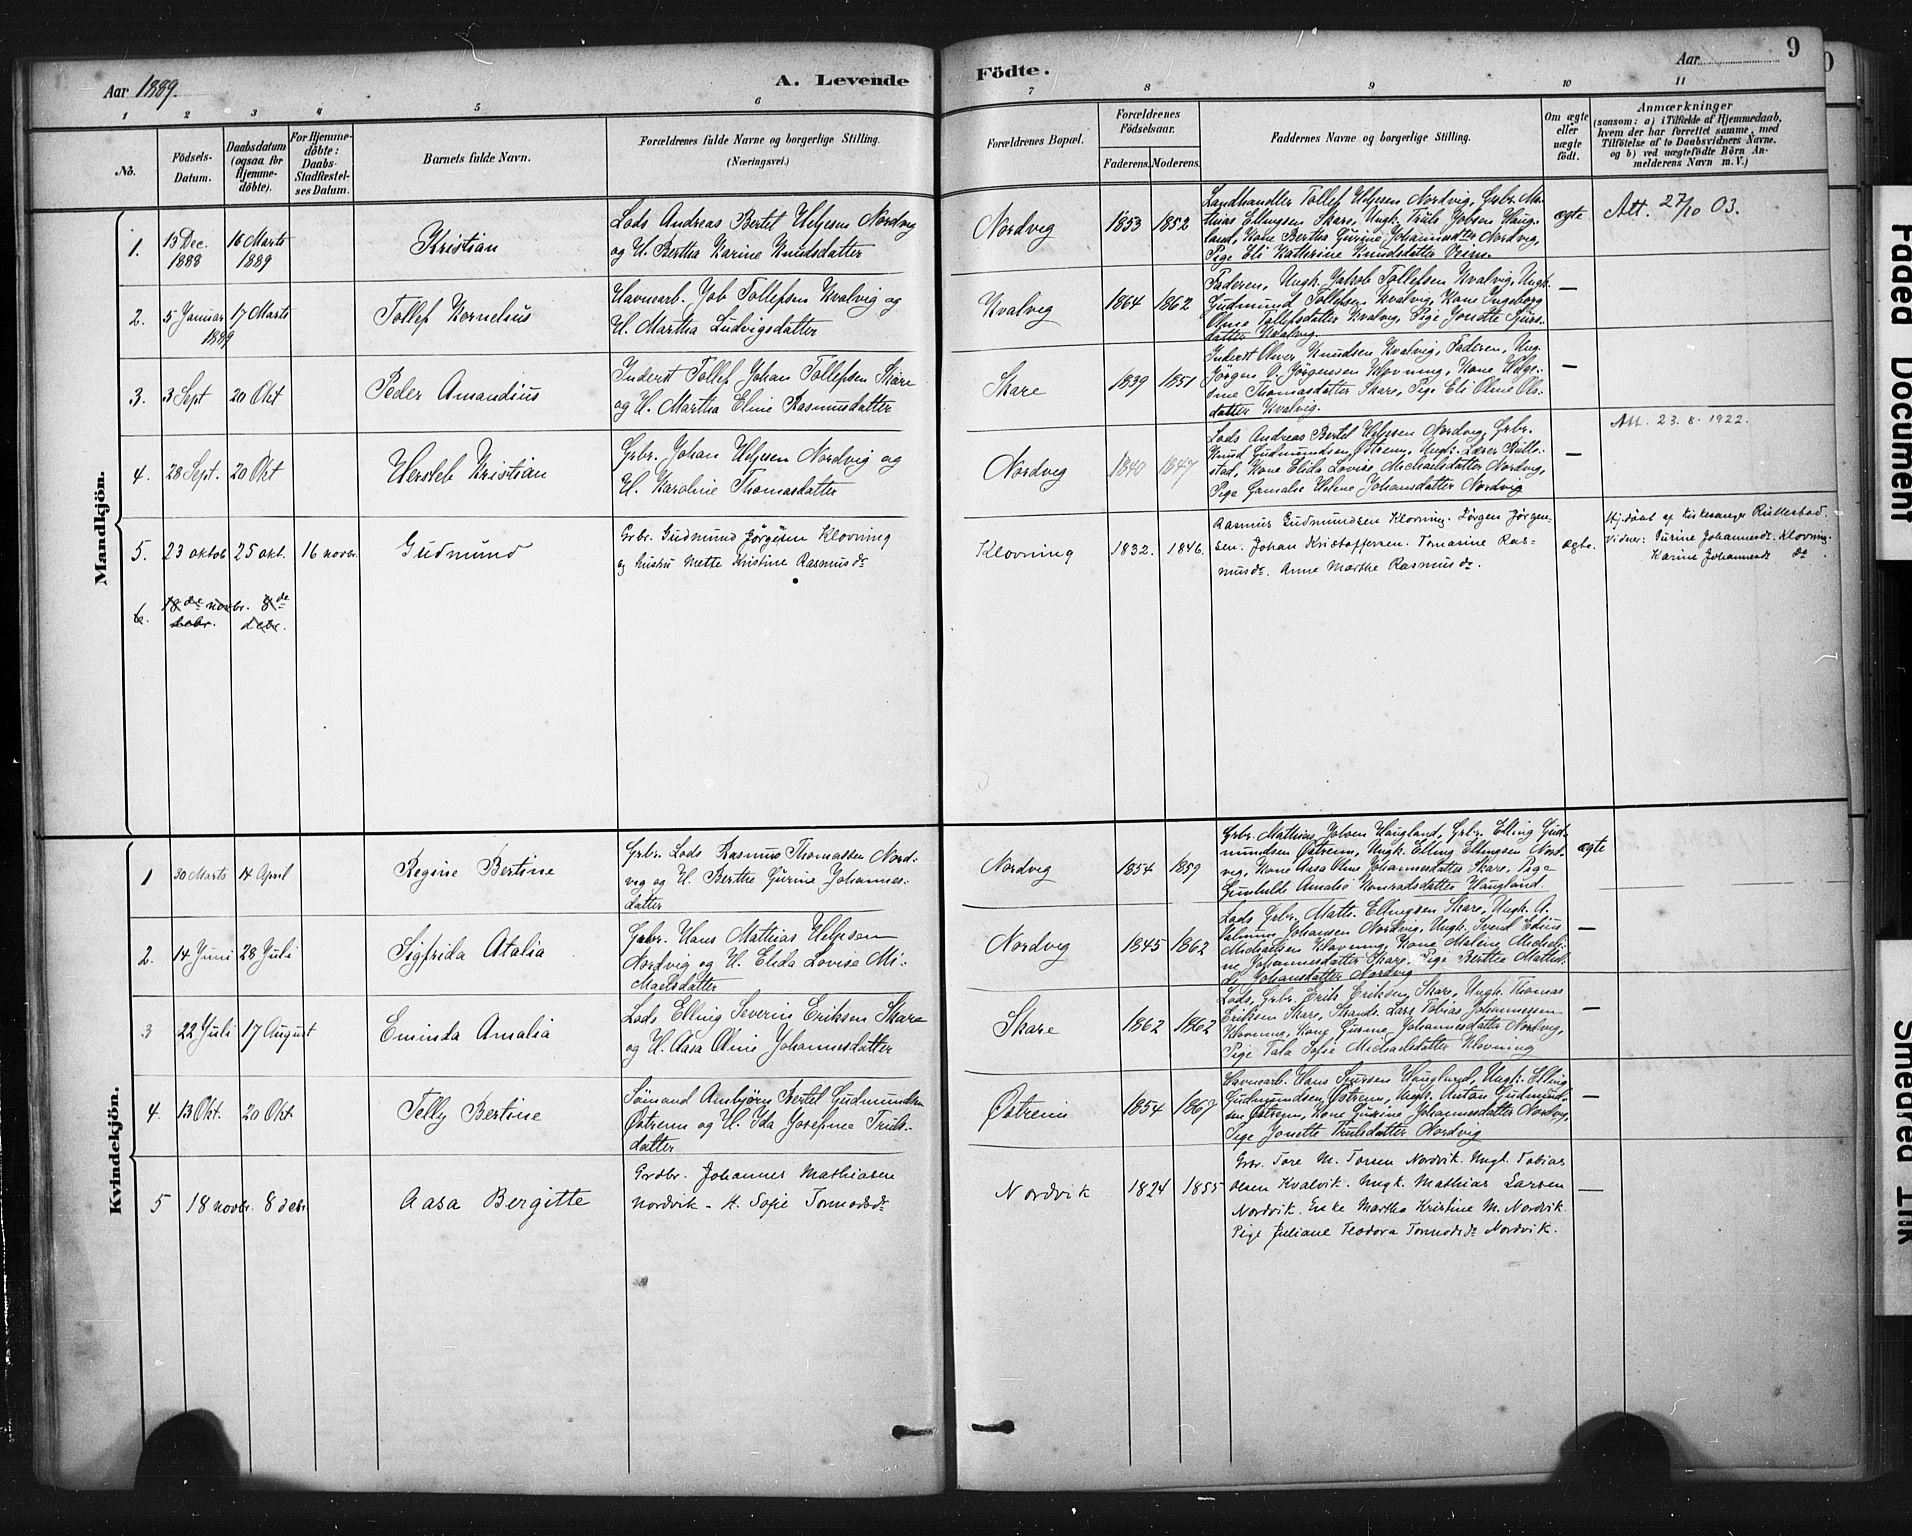 Aar 1889.
A. Levende
Födte.
Aar
9
1
2
3
4
5
6
7
8
9
10
11
No.
Födsels-
Datum.
Daabsdatum
(ogsaa for
Hjemme-
döbte).
For Hjemme-
döbte:
Daabs-
Stadfæstel-
ses Datum.
Barnets fulde Navn.
Forældrenes fulde Navne og borgerlige Stilling.
(Næringsvei.)
Forældrenes Bopæl.
Forældrenes
Födselsaar.
Faderens.
Moderens.
Faddernes Navne og borgerlige Stilling.
Om ægte
eller
uægte
födt.
Anmærkninger
(saasom: a) i Tilfælde af Hjemmedaab,
hvem der har forrettet samme, med
Tilföielse af to Daabsvidners Navne.
og b) ved uægtefödte Börn An-
melderens Navn m. V.)
Mandkjön.
1.
15 Dec.
1888
16 Marts
1889
Kristian
Lods Andreas Bertel Helgesen Nordvig
og H. Bertha Karine Knudsdatter
Nordvig
1853
1852
Landhandler Tollef Helgesen Nordvig, Grbr. Ma-
thias Ellingsen Skare, Ungk. Truls Jobsen Haug-
land, Kone Bertha Gurine Johannesdtr Nordvig,
Pige Eli Kathrine Knudsdatter
ægte
Att. 27/10 03.
2.
5 Januar
1889
17 Marts
Tollef Kornelius
Havnearb. Job Tollefsen Kvalvig og
H. Martha Ludvigsdatter
Kvalvig
1864
1862
Faderen, Ungk. Jakob Tollefsen Kvalvig, Ungk.
Gudmund Tollefsen Kvalvig, Kone Ingeborg
Oline Tollefsdatter Kvalvig, Pige Jonette Sjurs-
datter Kvalvig
—
3.
3 Sept
20 Okt
Peder Amandius
Inderst Tollef Johan Tollefsen Skare
og H. Martha Eline Rasmusdatter
Skare
1839
1851
Inderst Oliver Knudsen Kvalvig, Faderen, Ung.
Jørgen O. Jørgensen Klovning, Kone Helge-
Thomasdatter Skare, Pige Eli Oline Ols-
datter Kvalvig.
—
4.
28 Sept.
20 Okt
Hersleb Kristian
Grbr. Johan Helgesen Nordvig og
H. Karoline Thomasdatter
Nordvig
1840
1847
Lods Andreas Bertel Helgesen Nordvig, Grbr.
Knud Gudmundsen Østrem, Ungk. Lærer Rulle-
stad, Kone Elida Lovise Michaelsdatter Nordvig,
Pige Gamalie Helene Johansdatter Nordvig
—
Att. 23.8.1922.
5.
23 oktob
25 okt.
16 novbr.
Gudmund
Grbr. Gudmund Jørgensen Klovning
og hustru Mette Kristine Rasmusdr
Klovning
1832.
1846.
Rasmus Gudmundsen Klovning. Jørgen Jørgen-
sen. Johan Kristoffersen. Tomasine Ras-
musdr. Anne Marthe Rasmusdr.
ægte.
Hj.døbt af kirkesanger Rullestad.
Vidner: Gurine Johannesdr. Klovning.
Karine Johannesdr do.
6.
18de novbr. 8de
debr.
Kvindekjön.
1
30 Marts
14 April
Regine Bertine
Grbr. Lods Rasmus Thomassen Nord-
vig og H. Berthe Gurine Johannes-
datter
Nordvig
1854
1859
Grbr. Mathias Jobsen Haugland, Grbr. Elling Gud-
mundsen Østrem, Ungk. Elling Ellingsen Nord-
vig, Kone Aasa Oline Johannesdatter Skare, Pige
Gunhilde Amalie Konradsdatter Haugland.
ægte
2.
14 Juni
28 Juli
Sigfrida Atalia
Grbr. Hans Mathias Helgesen
Nordvig og H. Elida Lovise Mi-
Maelsdatter
Nordvig
1845
1862
Lods, Grbr. Math. Ellingsen Skare, Ungk. A.
Johansen Nordvig, Ungk. Svend Edius
Michaelsen Klovning, Kone Malene Micheli-
ne Johannesdatter Skare, Pige Berthea Mathil-
de Johansdatter Nordvig
—
3
22 Juli
17 August
Eminda Amalia
Lods Elling Severin Eriksen Skare
og H. Aasa Oline Johannesdatter
Skare
1862
1862
Lods, Grbr. Erik Eriksen Skare, Ungk. Thomas
Eriksen Skare, Strands. Lars Tobias Johannesen
Klovning, Kone Gurine Johannesdatter Nordvig,
Pige Tala Sofie Michaelsdatter Klovning
—
4.
13 Okt.
20 Okt
Telly Bertine
Sömand Ambjørn Bertel Gudmundsen
Østrem og H. Ida Josefine Truls-
datter
Østrem
1854
1867
Havnearb. Hans Sjursen Haugland, Ungk. Elling
Gudmundsen Østrem, Ungk. Anton Gudmund-
sen Østrem, Kone Gurine Johannesdatter Nordvig,
Pige Jonette Trulsdatter Nordvig
—
5
18 novbr.
8 debr
Aasa Bergitte
Grdbr. Johannes Mathiasen
Nordvik - H. Sofie Tormodsdr
Nordvik
1824
1855
Grbr. Tore M. Torsen Nordvik. Ungk. Tobias
Olsen Kvalvik. Ungk. Mathias Larsen
Nordvik. Enke Martha Kristine M. Nordvik.
Pige Juliane Teodora Tormodsdr Nordvik.
—
Faded Document
Smeared Ink